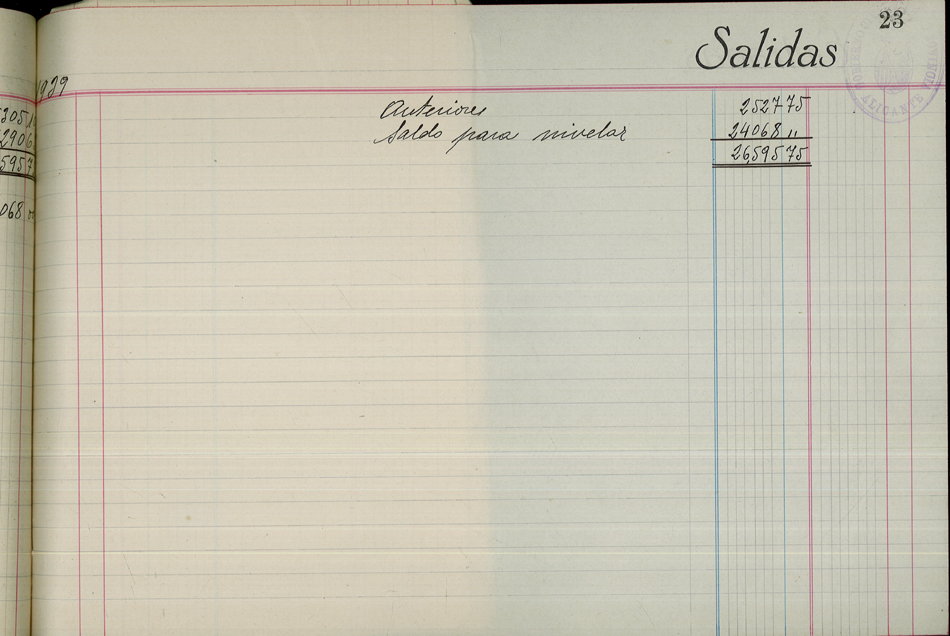 23
Salidas
1929
Anteriores 2527 75
Saldo para nivelar 24068 "
26595 75
ALICANTE